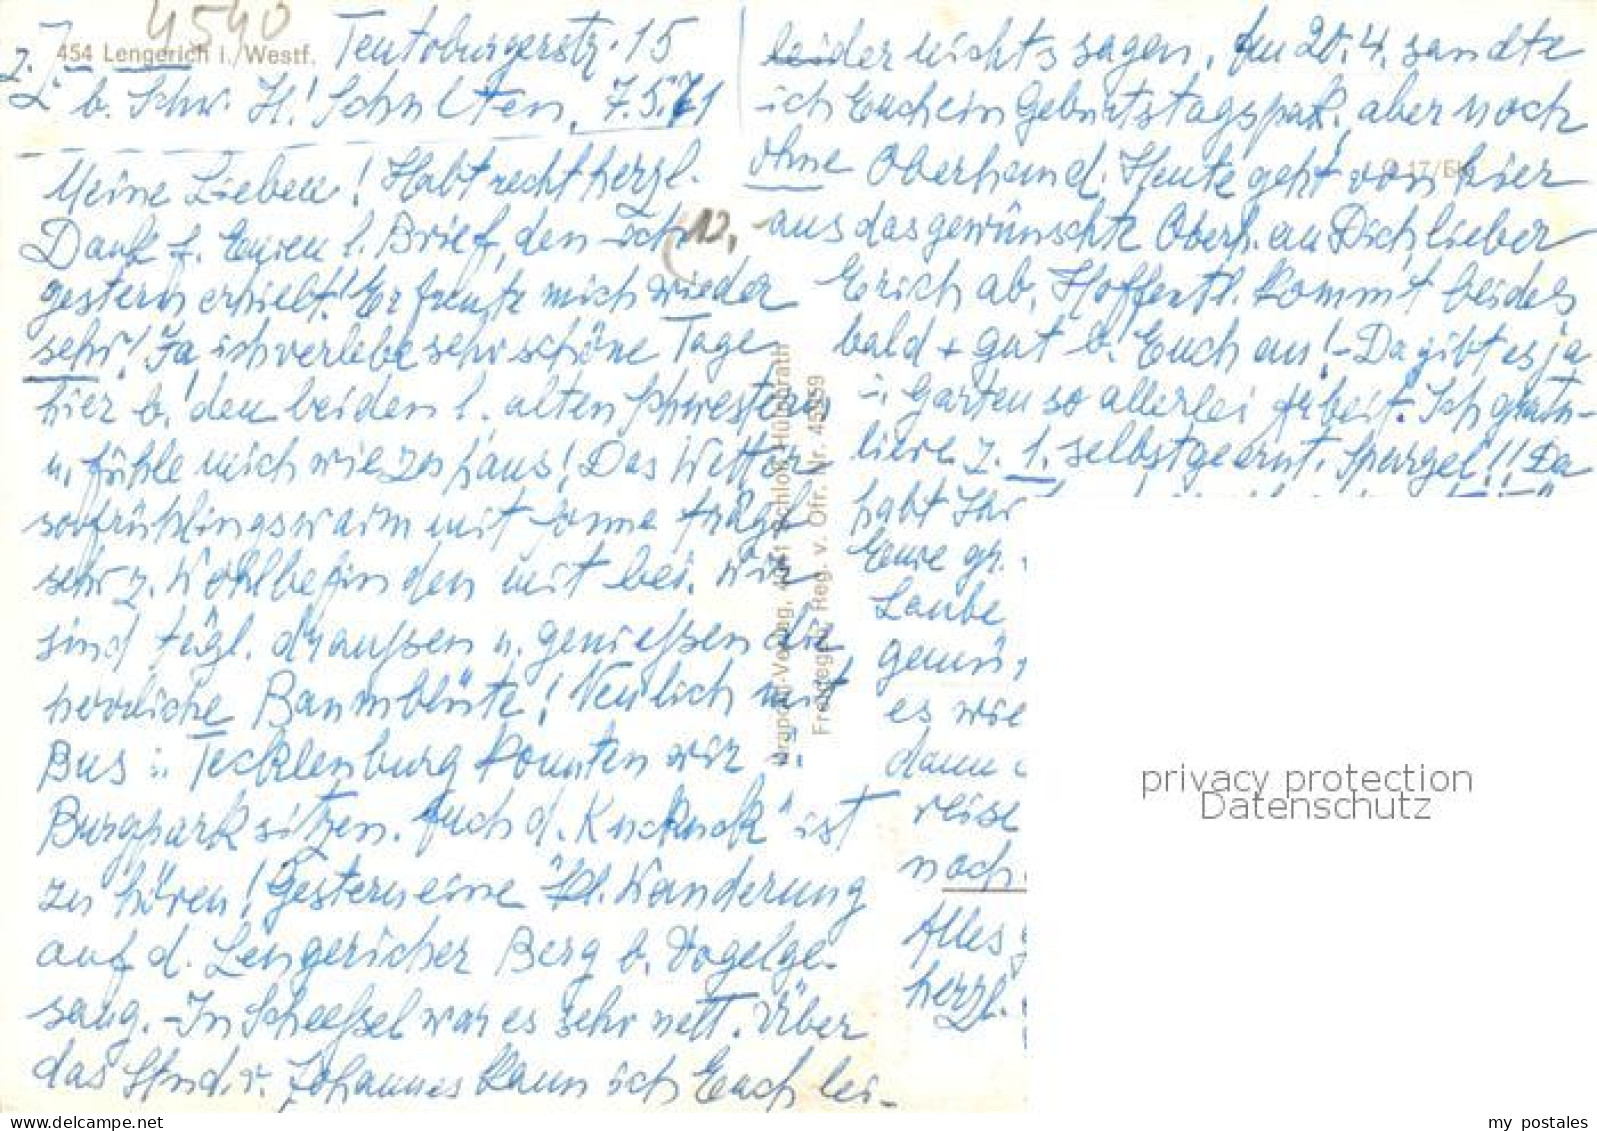 4540
454 Lengerich i./Westf. Teutoburgerstr. 15
z. Z. b. Schw. H. Schulten, 7.5.71
Meine Lieben! Habt recht herzl.
Dank f. Euren l. Brief, den ich
gestern erhielt! Er freute mich wieder
sehr! Ja, ich verlebe sehr schöne Tage
hier b. den beiden l. alten Schwestern
u. fühle mich wie zu haus! Das Wetter
so frühlingswarm mit Sonne trägt
sehr z. Wohlbefinden mit bei. Wir
sind tägl. draußen u. genießen die
herrliche Baumblüte! Neulich mit
Bus i. Tecklenburg konnten wir i.
Burgpark sitzen. Auch d. "Kuckuck" ist
zu hören! Gestern eine kl. Wanderung
auf d. Lengericher Berg b. Vogelge-
sang. - In Scheeßel war es sehr nett. Über
das Stud. v. Johannes kann ich Euch lei-
leider nichts sagen. Am 20.4. sandte
ich Euch ein Geburtstagspak., aber noch
ohne Oberhemd. Heute geht von hier
aus das gewünschte Oberh. an Dich lieber
Erich ab. Hoffentl. kommt beides
bald + gut b. Euch an! - Da gibt es ja
i. Garten so allerlei Arbeit. Ich gratu-
liere z. 1. selbstgeernt. Spargel!! Da
habt Ihr
Eure gr.
Laube
es wie
dann
reise
noch
Alles
herzl.
Krapohl-Verlag, 4041 Schloß Hülchrath
Freigegeb. Reg. v. Ofr. Nr.
privacy protection
Datenschutz
my postales